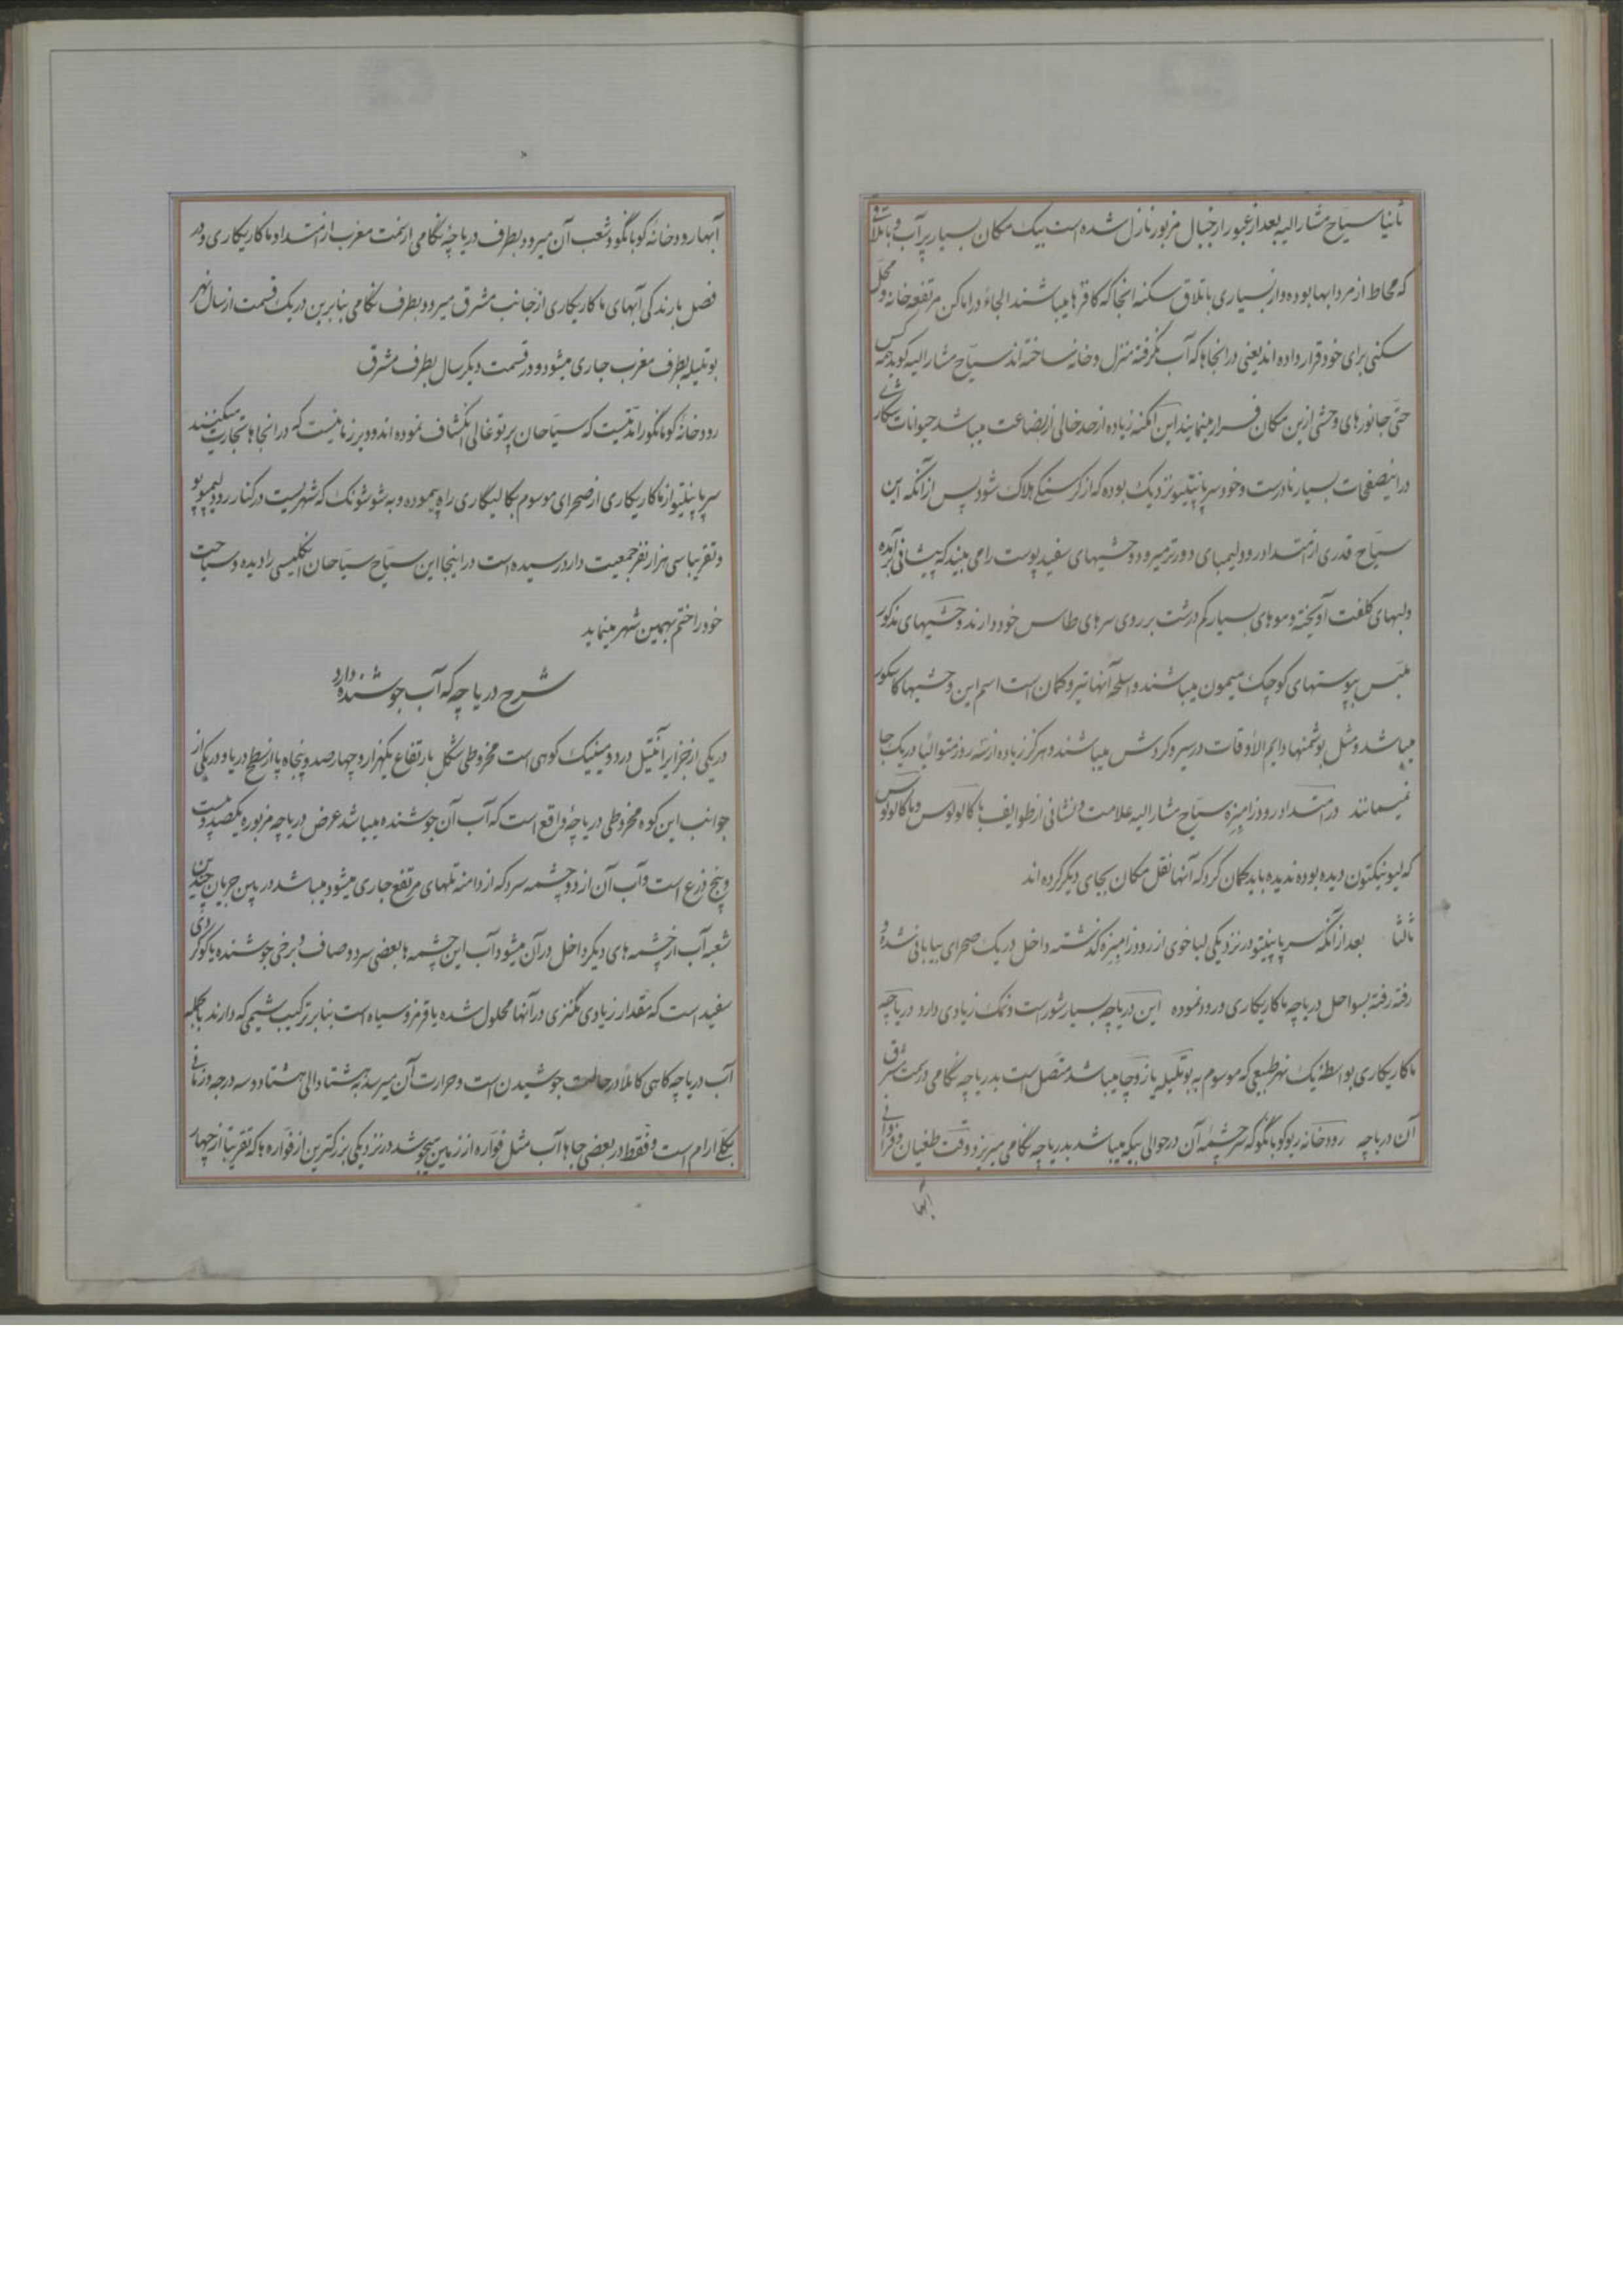 ثانیا سیاح مشارالیه بعد از عبور از جبال مزبور نازل شده است بیک مکان بسیار پر آب و باتلاقی
که محاط از مردابها بوده و از بسیاری باتلاق سکنه انجا که کافرها میباشند الجاءً در اماکن مرتفعه خانه و محل
سکنی برای خود قرار داده اند یعنی در انجاها که آب نگرفته منزل و خانه ساخته اند سیاح مشارالیه کوید همه کس
حتی جانورهای وحشی ازین مکان فرار مینمایند این امکنه زیاده از حد خالی از بضاعت میباشد حیوانات شکاری
در اینصفحات بسیار نادرست و خود سرپاپنتیو نزدیک بوده که از کرسنکی هلاک شود پس از آنکه این
سیاح قدری از امتداد رود لیمبای دورتر میرود وحشیهای سفید پوست را می بیند که پیشانی برآمده
و لبهای کلفت آویخته و موهای بسیار کم درشت بر روی سرهای طاس خود دارند وحشیهای مذکور
ملبس بپوستهای کوچک میمون میباشند و اسلحه آنها تیر و کمان است اسم این وحشیها کاسکور
میباشد و مثل بوشمنها دایم الاوقات در سیر و کردش میباشند و هرکز زیاده از سه روز متوالیا در یک جا
نمیمانند در امتداد رود زامبزه سیاح مشارالیه علامت و نشانی از طوایف باکالولوس و ماکالولوس
که لیوینکتون دیده بوده ندیده باید کمان کرد که آنها نقل مکان بجای دیگر کرده اند
ثالثا بعد از آنکه سرپاپنتیو در نزدیکی لیاخوی از رود زامبزه کذشته داخل در یک صحرای بیابانی شده و
رفته رفته بسواحل دریاچه ماکاریکاری ورود نموده این دریاچه بسیار شور است و نمک زیادی دارد دریاچه
ماکاریکاری بواسطه یک نهر طبیعی که موسوم به بوتلیله یا زوچا میباشد متصل است بدریاچه نکامی در سمت شرق
آن دریاچه رودخانه ریوکوبانگو که سرچشمه آن در حوالی بیکه میباشد بدریاچه نکامی میریزد و وقت طغیان و فراوانی
آبها
آبها رودخانه کوبانگو و شعب آن میرود بطرف دریاچه نکامی از سمت مغرب از امتداد ماکاریکاری و در
فصل بارندکی آبهای ماکاریکاری از جانب مشرق میرود بطرف نکامی بنابرین در یک قسمت از سال نهر
بوتلیله بطرف مغرب جاری میشود و در قسمت دیکر سال بطرف مشرق
رودخانه کومانگو را مدتیست که سیاحان پرتوغالی انکشاف نموده اند و دیر زمانیست که در انجاها تجارت میکنند
سرپاپنتیو از ماکاریکاری از صحرای موسوم بکالیکاری راه پیموده و به شوشونک که شهریست در کنار رود لیمپوپو
و تقریبا سی هزار نفر جمعیت دارد رسیده است در اینجا این سیاح سیاحان انکلیسی را دیده و سیاحت
خود را ختم بهمین شهر مینماید
شرح دریاچه که آب جوشنده دارد
در یکی از جزایر آنتیل در دومینیک کوهی است مخروطی شکل بارتفاع یکهزار و چهارصد و پنجاه پا از سطح دریا و در یکی از
جوانب این کوه مخروطی دریاچهٔ واقع است که آب آن جوشنده میباشد عرض دریاچه مزبوره یکصد و بیست
و پنج ذرع است و آب آن از دو چشمه سرد که از دامنه تلهای مرتفع جاری میشود میباشد در بین جریان چندین
شعبه آب از چشمه های دیکر داخل در آن میشود آب این چشمه ها بعضی سرد و صاف و برخی جوشنده یا کوکردی
سفید است که مقدار زیادی مگنزی در آنها محلول شده یا قرمز و سیاه است بنابر ترکیب شیمی که دارند بالجمله
آب دریاچه کاهی کاملا در حالت جوشیدن است و حرارت آن میرسد به هشتاد الی هشتاد و سه درجه و زمانی
بکلی ارام است و فقط در بعضی جاها آب مثل فواره از زمین میجوشد در نزدیکی بزرکترین از فواره ها که تقریبا از چهار